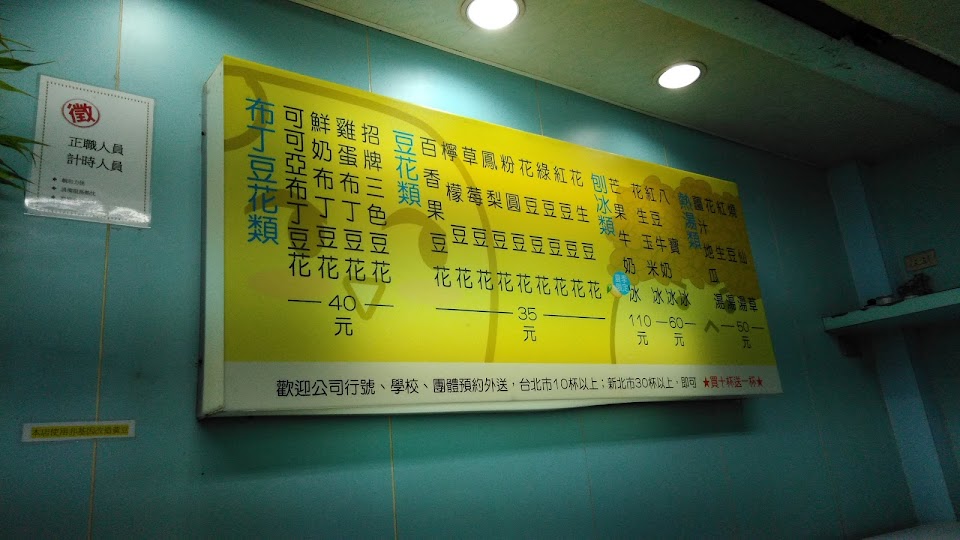 徵
正職人員
計時人員
布丁豆花類
可可亞布丁豆花
鮮奶布丁豆花
雞蛋布丁豆花
招牌三色豆花
40元
豆花類
百香果豆花
檸檬豆花
草莓豆花
鳳梨豆花
粉圓豆花
花豆豆花
綠豆豆花
紅豆豆花
花生豆花
35元
刨冰類
芒果牛奶冰
110元
花生玉米冰
紅豆牛奶冰
八寶冰
60元
熱湯類
薑汁地瓜湯
花生湯
紅豆湯
燒仙草
50元
歡迎公司行號、學校、團體預約外送，台北市10杯以上；新北市30杯以上，即可 ★買十杯送一杯★
本店使用非基因改造黃豆